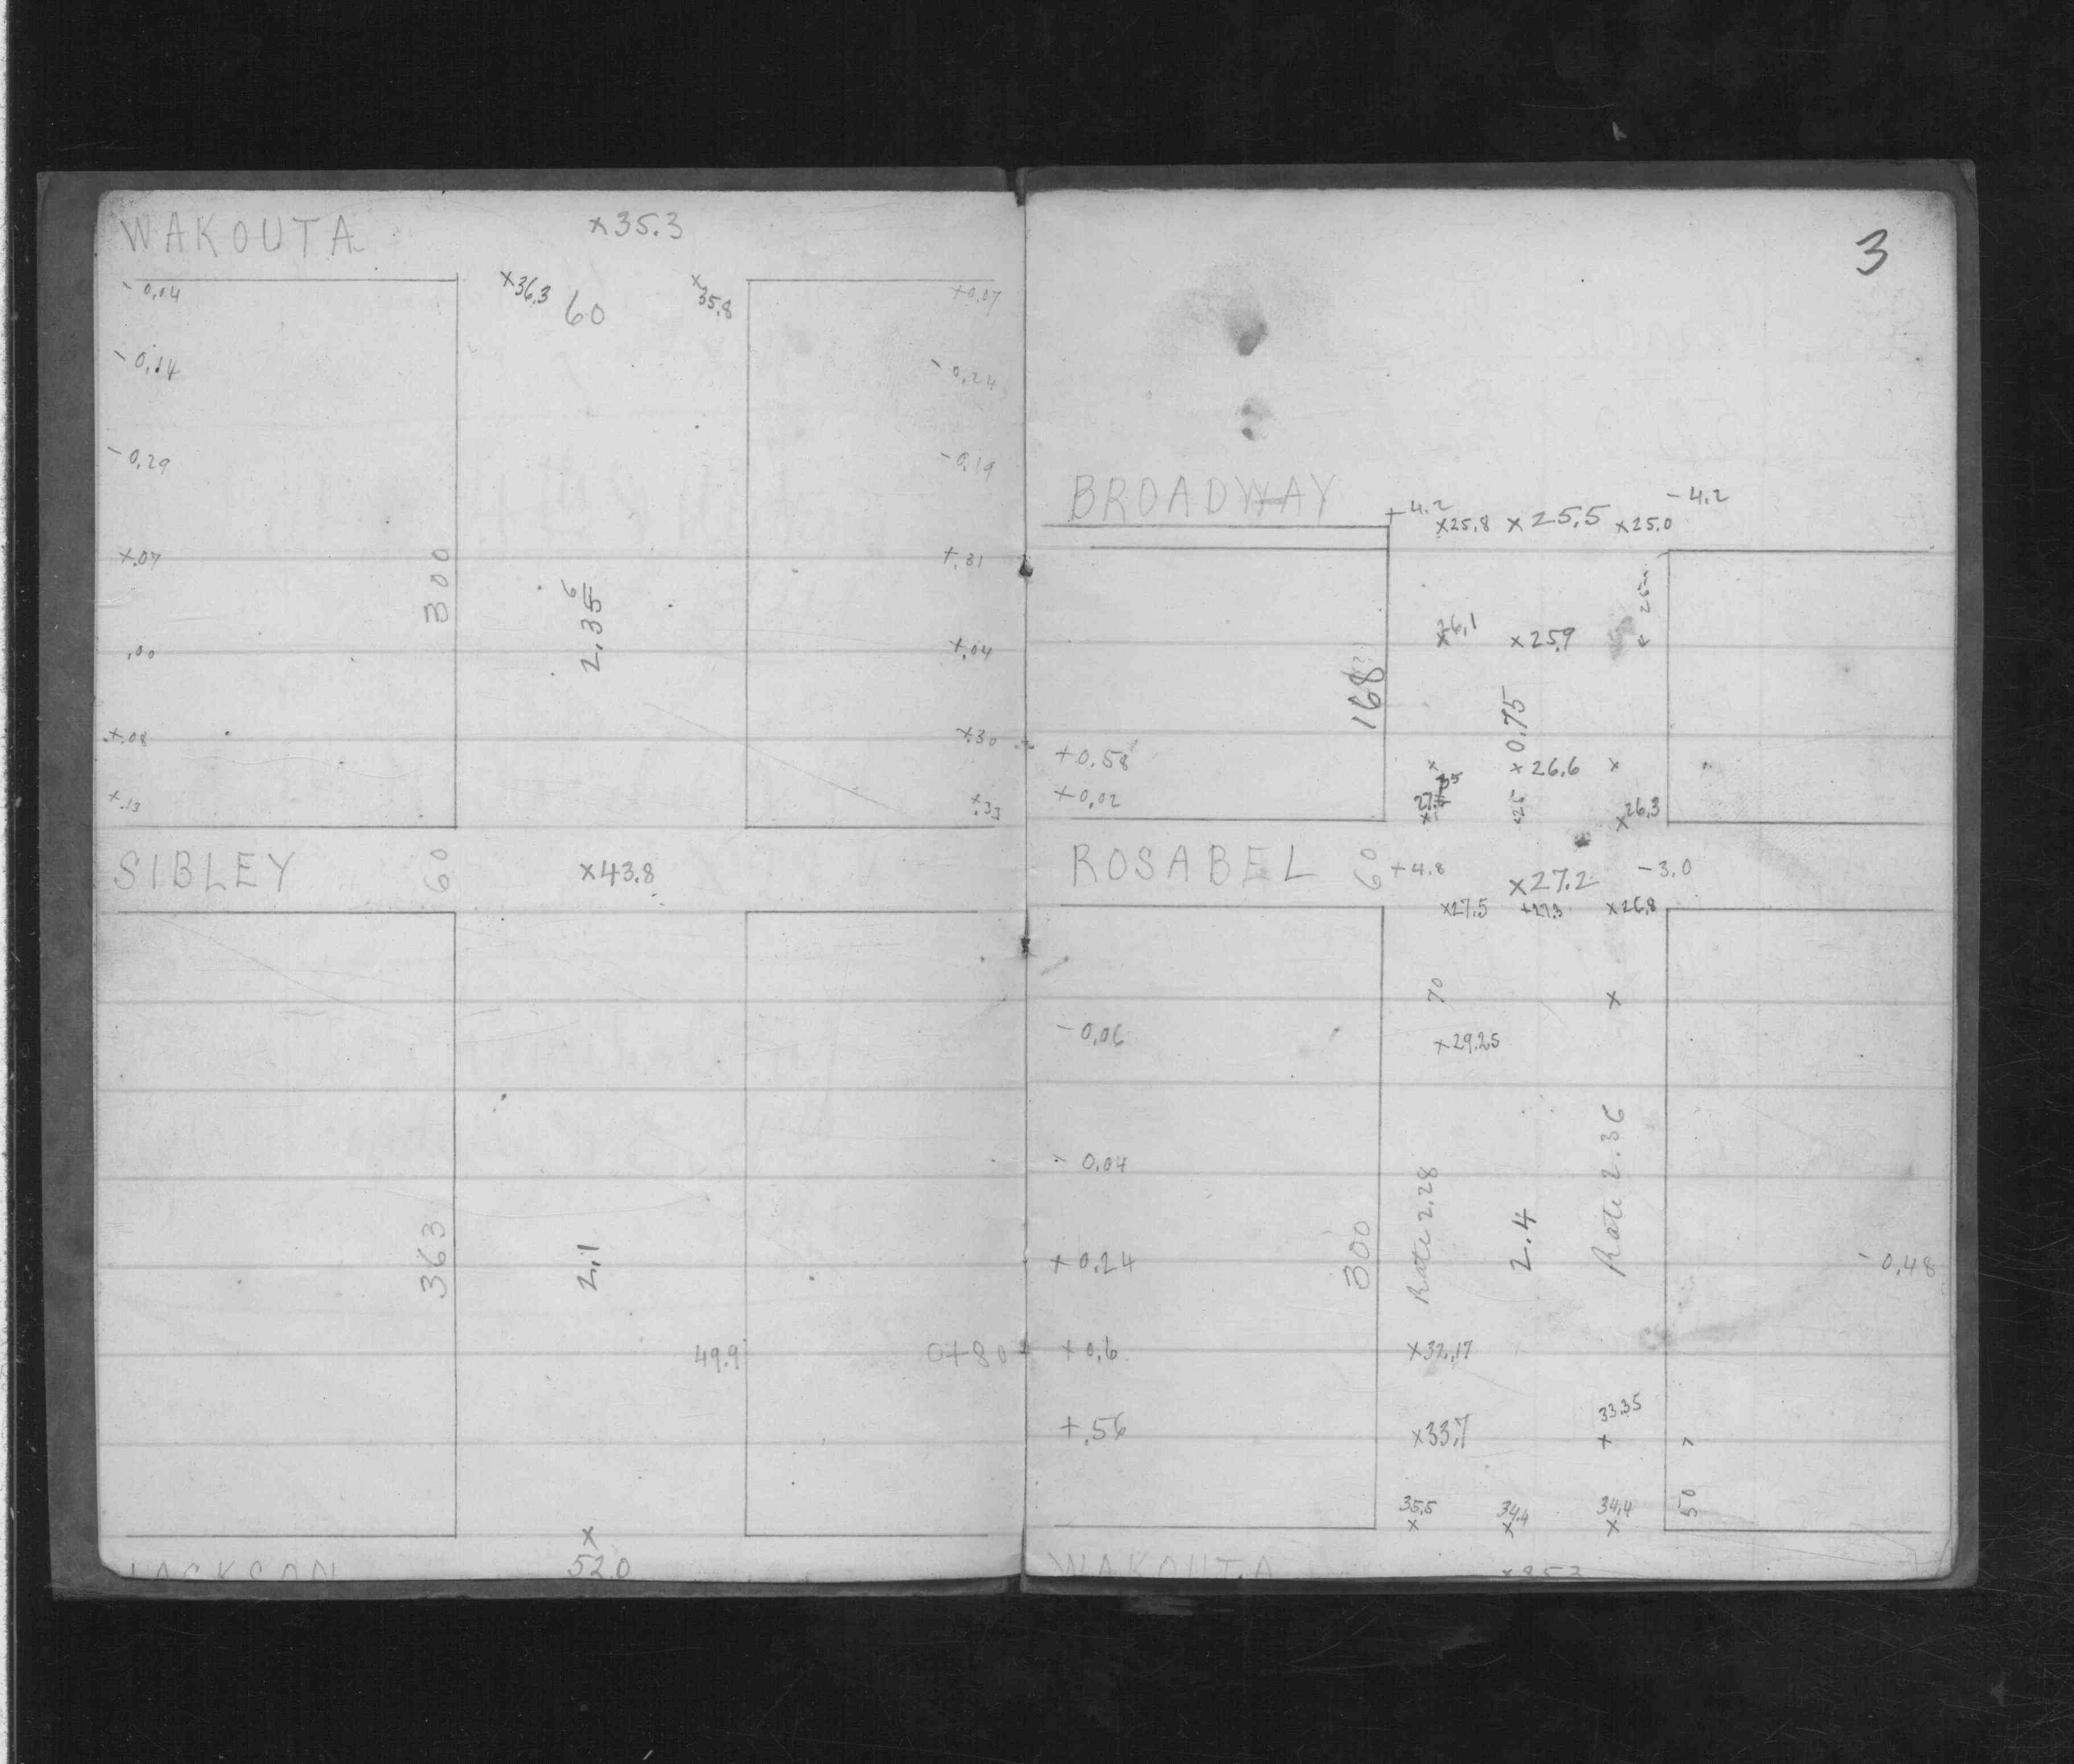 WAKOUTA x35.3
- 0.04 x36.3 60 x35.8 +0.07
- 0.14 - 0.24
- 0.29 - 0.19
+.07 300 2.35 6 +.31
.00 +.04
+.08 +.30
+.13 +.33
SIBLEY 60 x43.8
363 2.1
49.9 0+80
x
JACKSON 52.0
3
BROADWAY +4.2 x25.8 x25.5 x25.0 - 4.2
x26.1 x25.9
168
0.75
+0.58 x x26.6 x
+0.02 x26.3
ROSABEL 60 +4.8 x27.2 - 3.0
x27.5 +27.3 x26.8
70 x
- 0.06 x29.25
0.04
+ 0.24 300 Rate 2.28 2.4 Rate 2.36 - 0.48
+ 0.6 x32.17
+.56 x33.7 33.35 +
35.5 x 34.4 x 34.4 x 50
WAKOUTA